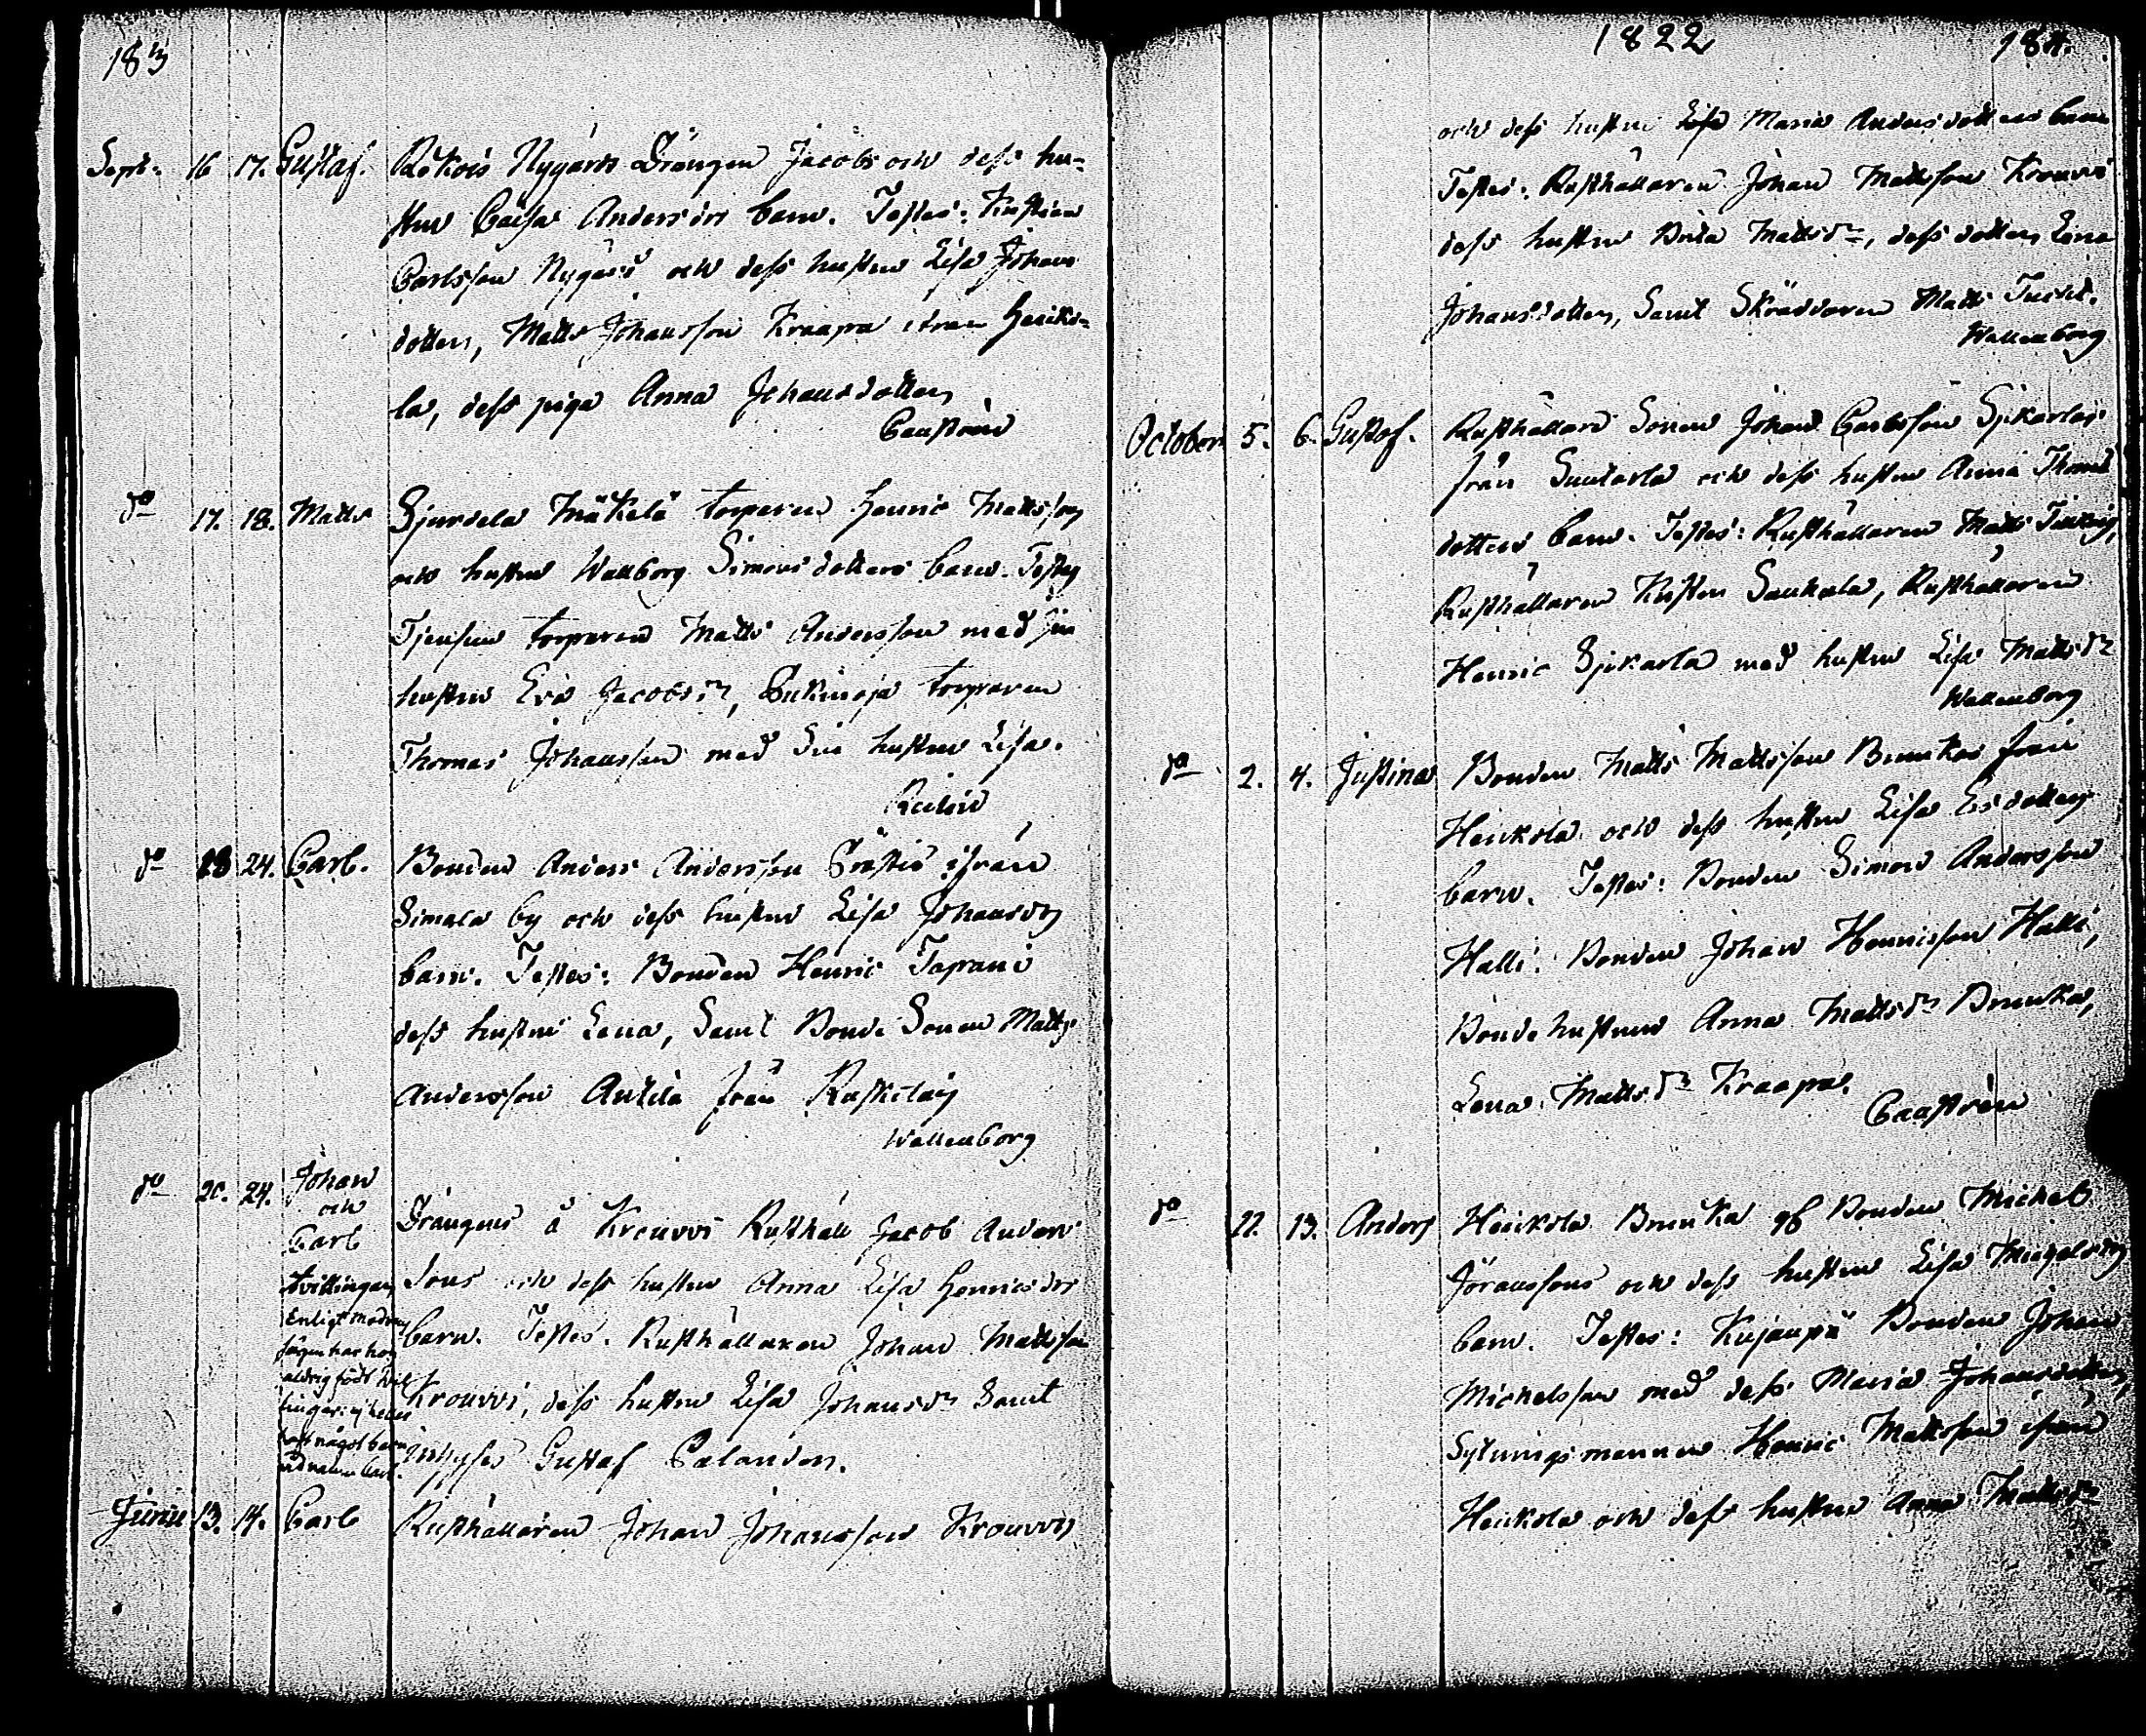 183
Sept. 16 17. Gustaf. Rekois Nygårds Drängen Jacobs och dess hu-
stru Caisa Andersdrs barn. Testes: Kustaa
Carlsson Nygård och dess hustru Lisa Johans
dotter, Matts Johansson Kraapa ifrån Heriko-
la, dess piga Anna Johansdotter
Caastrén
do 17. 18. Matts Sjurdela Mäkelä torparen Henric Mattsson
och hustru Wallborg Simonsdotters barn. Testes
torparen Matts Andersson med sin
hustru Eva Jacobsdr, torparen
Thomas Johansson med Sin hustru Lisa.
do 23 24. Carl. Bonden Anders Andersson Präftiö ifrån
Simala by och dess hustru Lisa Johansdr
barn. Testes: Bonden Henric Tapani
dess hustru Lena, Samt Bonde Sonen Matts
Andersson Antila från
Wallenborg
do 20. 24. Johan
och
Carl
tvillingar
Enligt modrens
sägen har hon
aldrig födt twil
lingar: ej heller
haft något barn
vid namn Carl.
Drängens å Krouvi Rusthåll Jacob Anders
Sons och dess hustru Anna Lisa Henricsdrs
barn. Testes. Rusthållaren Johan Mattsson
Krouvi, dess hustru Lisa Johansdr Samt
Inhyses Gustaf Calander.
Junii 13. 14. Carl Rusthållaren Johan Johansson Krouvis
1822 184.
och dess hustru Maria Andersdotters barn
Testes. Rusthållaren Johan Mattsson Krouvi
dess hustru Brita Mattsdr, dess dotter Lena
Johansdotter, Samt Skräddaren Matts
Wallenborg
October 5. 6. Gustaf. Rusthållare Sonen Johan Carlsson Sjikarlas
från Suutarla och dess hustru Anna Thomas
dotters barn. Testes: Rusthållaren Matts
Rusthållaren Kustaa Saukala, Rusthållaren
Henric Sjikarla med hustru Lisa Mattsdr
Wallenborg
do 2. 4. Justina Bonden Matts Mattsson Brunkas från
Heickola och dess hustru Lisa Esdotters
barn. Testes: Bonden Simon Andersson
Halli. Bonden Johan Henricsson Halli,
Bondehustrun Anna Mattsdr Brunka,
Lena Mattsdr Kraapa.
Caastrén
do 12. 13. Anders Heickola Brunka Bonden Michel
Jöranssons och dess hustru Lisa
barn. Testes: Kujanpä Bonden Johan
Michelsson med dess Maria Johansdotter,
Sytningsmannen Henric Mattsson ifrån
Heickola och dess hustru Anna Mattsdr